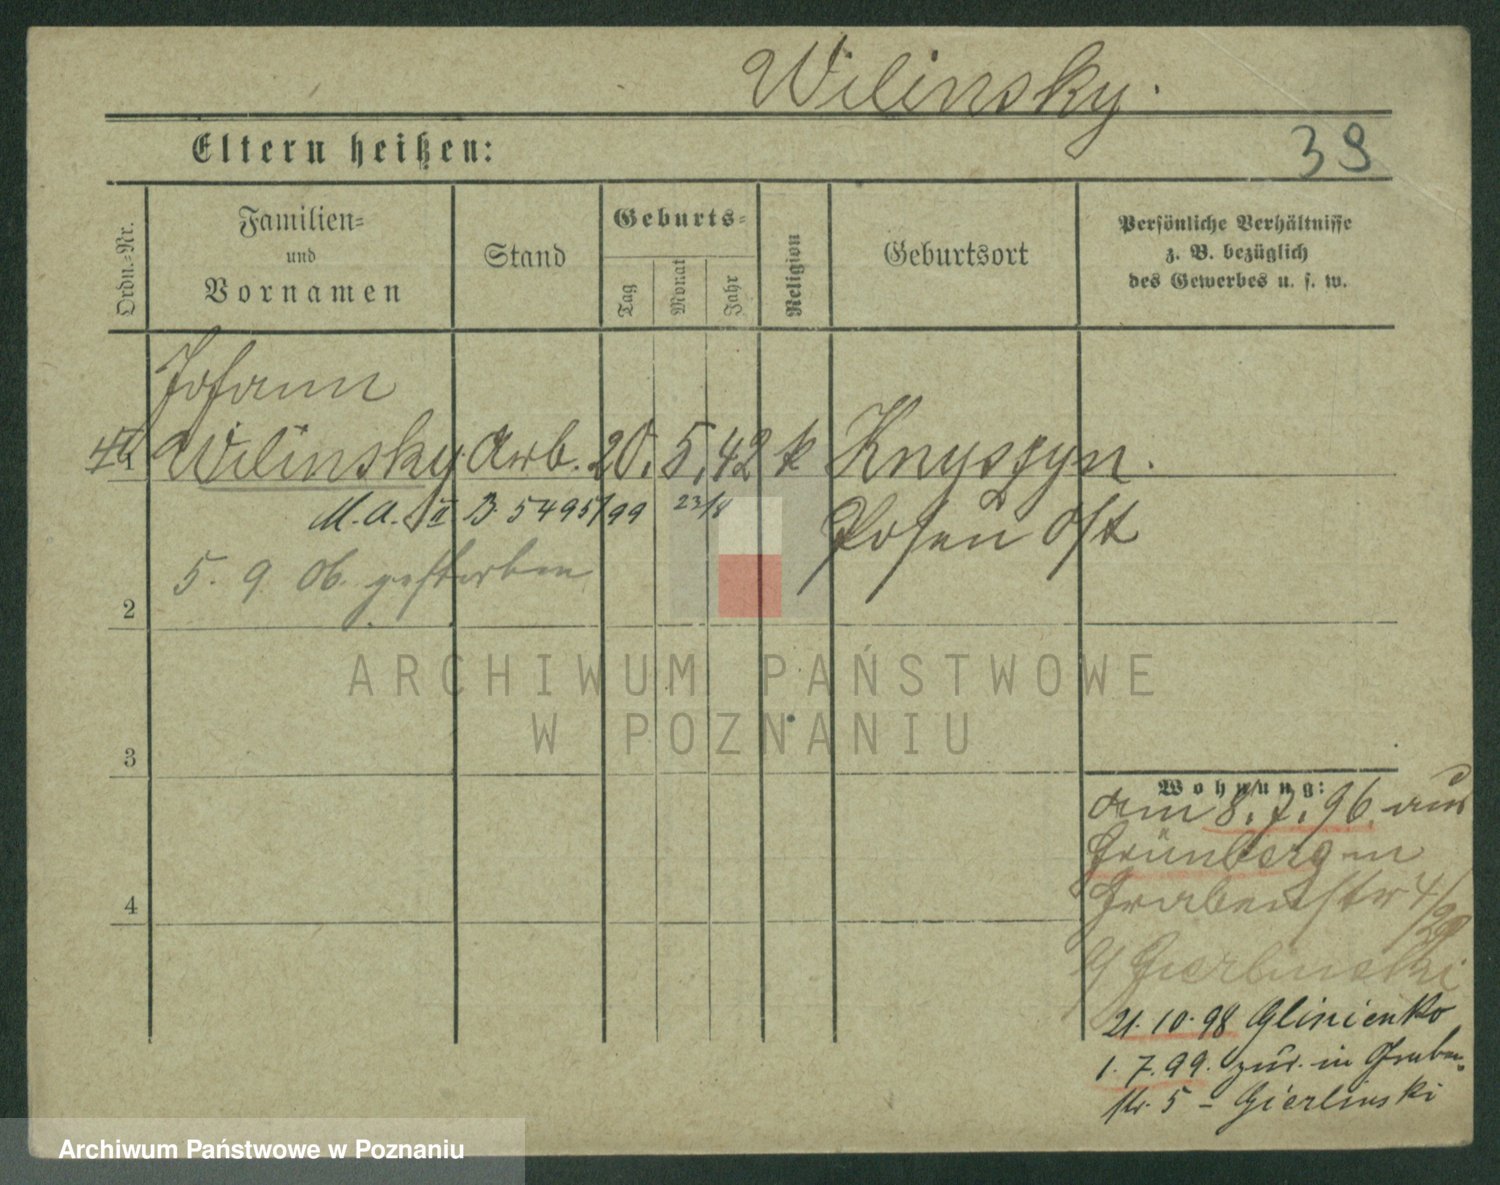 Wilinsky.
Eltern heißen:
39
Ordn.=Nr.
Familien=
und
Vornamen
Stand
Geburts=
Tag
Monat
Jahr
Religion
Geburtsort
Persönliche Verhältnisse
z. B. bezüglich
des Gewerbes u. s. w.
Johann
Wilinsky Arb. 20. 5. 42 k Knyszyn.
M. A. II B. 5495/99 23/8 Posen Ost
5. 9. 06. gestorben
2
3
4
Wohnung:
am 8. 7. 96. aus
Grünberg in
Grabenstr 4/
b/ Gierlinski
21. 10. 98 Glinienko
1. 7. 99. zur. in Graben
str. 5 - Gierlinski
ARCHIWUM PAŃSTWOWE
W POZNANIU
Archiwum Państwowe w Poznaniu